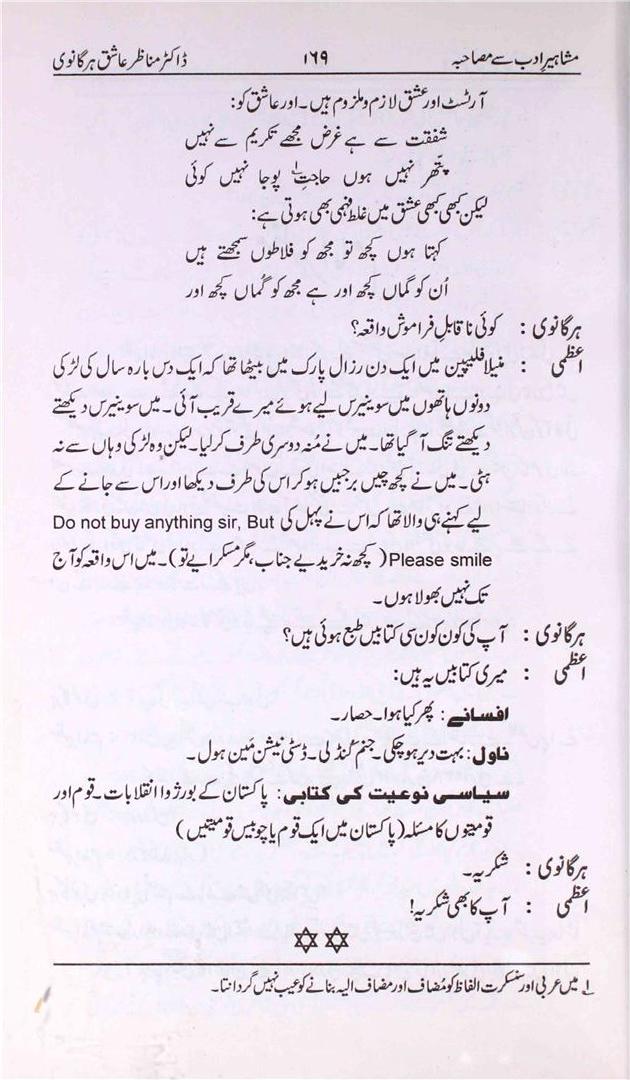 مشاہیرِ ادب سے مصاحبہ ۱۶۹ ڈاکٹر مناظر عاشق ہرگانوی
آرٹسٹ اور عشق لازم و ملزوم ہیں۔ اور عاشق کو:
شفقت سے ہے غرض مجھے تکریم سے نہیں
پتّھر نہیں ہوں حاجتِ پوجا نہیں کوئی
لیکن کبھی کبھی عشق میں غلط فہمی بھی ہوتی ہے:
کہتا ہوں کچھ تو مجھ کو فلاطوں سمجھتے ہیں
اُن کو گماں کچھ اور ہے مجھ کو گماں کچھ اور
ہرگانوی : کوئی ناقابلِ فراموش واقعہ؟
اعظمی : منیلا فلیپین میں ایک دن رزال پارک میں بیٹھا تھا کہ ایک دس بارہ سال کی لڑکی
دونوں ہاتھوں میں سوینیرس لیے ہوئے میرے قریب آئی۔ میں سوینیرس دیکھتے
دیکھتے تنگ آ گیا تھا۔ میں نے مُنہ دوسری طرف کرلیا۔ لیکن وہ لڑکی وہاں سے نہ
ہٹی۔ میں نے کچھ چیں بر جبیں ہو کر اس کی طرف دیکھا اور اس سے جانے کے
لیے کہنے ہی والا تھا کہ اس نے پہل کی Do not buy anything sir, But
Please smile (کچھ نہ خریدیے جناب، مگر مسکرایے تو)۔ میں اس واقعہ کو آج
تک نہیں بھولا ہوں۔
ہرگانوی : آپ کی کون کون سی کتابیں طبع ہوئی ہیں؟
اعظمی : میری کتابیں یہ ہیں:
افسانے: پھر کیا ہوا۔ حصار۔
ناول: بہت دیر ہوچکی۔ جنم کنڈلی۔ ڈسٹی نیشن مین ہول۔
سیاسی نوعیت کی کتابی: پاکستان کے بورژوا انقلابات۔ قوم اور
قومیتوں کا مسئلہ (پاکستان میں ایک قوم یا چوبیس قومیتیں)
ہرگانوی : شکریہ۔
اعظمی : آپ کا بھی شکریہ!
۱ میں عربی اور سنسکرت الفاظ کو مُضاف اور مضاف الیہ بنانے کو عیب نہیں گردانتا۔